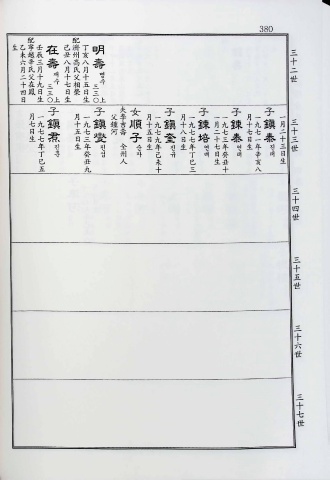 380
三十二世
明壽 명수 三三○上
丁亥八月十五日生
配濟州高氏父相榮
己丑八月十七日生
在壽 재수 三三○上
壬辰三月十九日生
配寧越辛氏父在鳳
乙未六月二十四日
生
三十三世
一月二十三日生
子 鎭泰 진태
一九七一年辛亥八
月十五日生
子 鍊泰 연태
一九七三年癸丑十
一月二十七日生
子 鍊培 연배
一九七七年丁巳三
月十八日生
子 鎭奎 진규
一九七九年己未十
月十五日生
女 順子 순자
夫李吉壽 全州人
父鍾河
子 鎭燮 진섭
一九七三年癸丑九
月十五日生
子 鎭熏 진훈
一九七七年丁巳五
月七日生
三十四世
三十五世
三十六世
三十七世